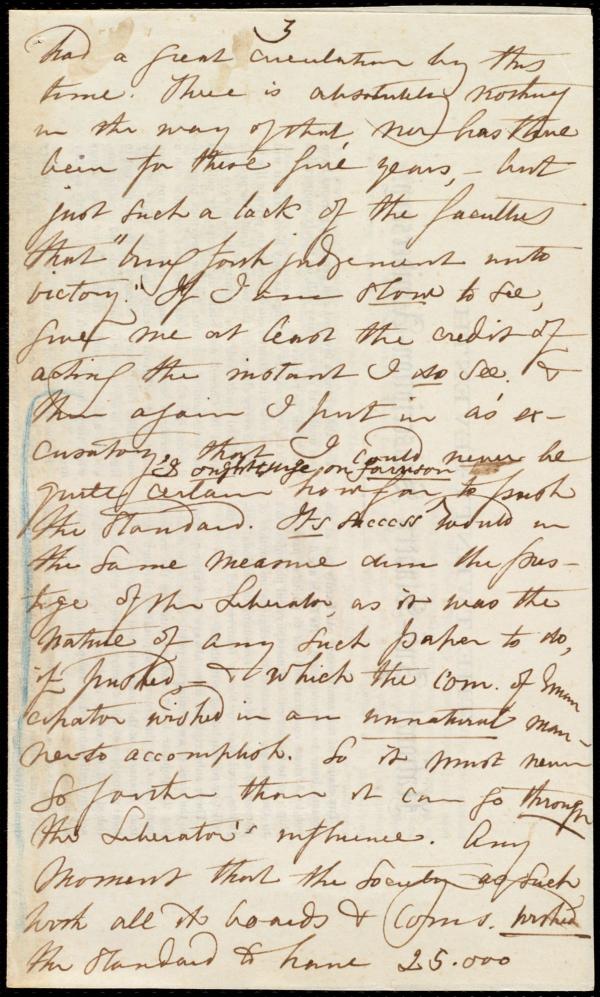 3
had a great circulation by this
time. There is absolutely nothing
in the way of that, nor has there
been for these five years, – but
just such a lack of the faculties
that "bring forth judgement unto
victory." If I am slow to see,
give me at least the credit of
acting the instant I do see. &
then again I put in as ex-
cusatory, that I could never be
I ought to urge on Garrison
quite certain how far, to push
the Standard. Its success would in
the same measure dim the pres-
tige of the Liberator, as it was the
nature of any such paper to do,
if pushed – & which the com. of Eman
cipator wished in an unnatural man-
ner to accomplish. So it must never
go farther than it can go through
the Liberator's influence. Any
moment that the Society as such
with all its boards & Coms. wished
the Standard to have 25.000